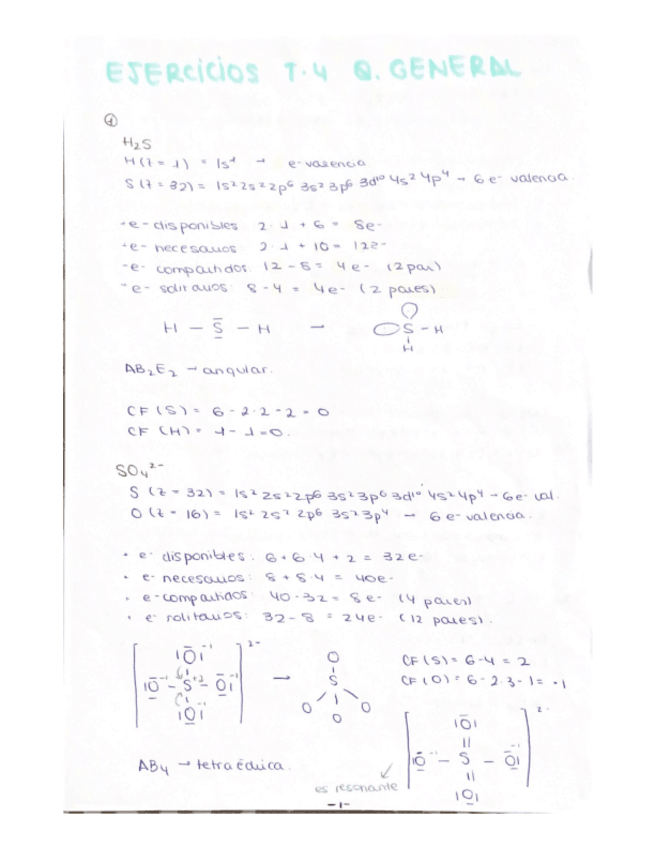 EJERCICIOS T.4 Q. GENERAL
①
H₂S
H (Z = 1) = 1s¹ → e- valencia
S (Z = 32) = 1s² 2s² 2p⁶ 3s² 3p⁶ 3d¹⁰ 4s² 4p⁴ → 6 e- valencia.
-e- disponibles: 2·1 + 6 = 8e-
-e- necesarios: 2·1 + 10 = 12e-
-e- compartidos: 12 - 8 = 4e- (2 par)
-e- solitarios: 8 - 4 = 4e- (2 pares)
H — S — H → S - H
H
AB₂E₂ → angular.
CF (S) = 6 - 2·2 - 2 = 0
CF (H) = 1 - 1 = 0.
SO₄²⁻
S (Z = 32) = 1s² 2s² 2p⁶ 3s² 3p⁶ 3d¹⁰ 4s² 4p⁴ → 6e- val.
O (Z = 16) = 1s² 2s² 2p⁶ 3s² 3p⁴ → 6 e- valencia.
• e- disponibles: 6 + 6·4 + 2 = 32e-
• e- necesarios: 8 + 8·4 = 40e-
• e- compartidos: 40 - 32 = 8e- (4 pares)
• e- solitarios: 32 - 8 = 24e- (12 pares).
CF (S) = 6 - 4 = 2
CF (O) = 6 - 2·3 - 1 = -1
|O|⁻¹ 2-
|O⁻¹ — S⁺² — O|⁻¹ →
|O|⁻¹
O
S
O O O
|O| 2-
|O⁻¹ — S — O|⁻¹
|O|
AB₄ → tetraédrica.
es resonante
-1-